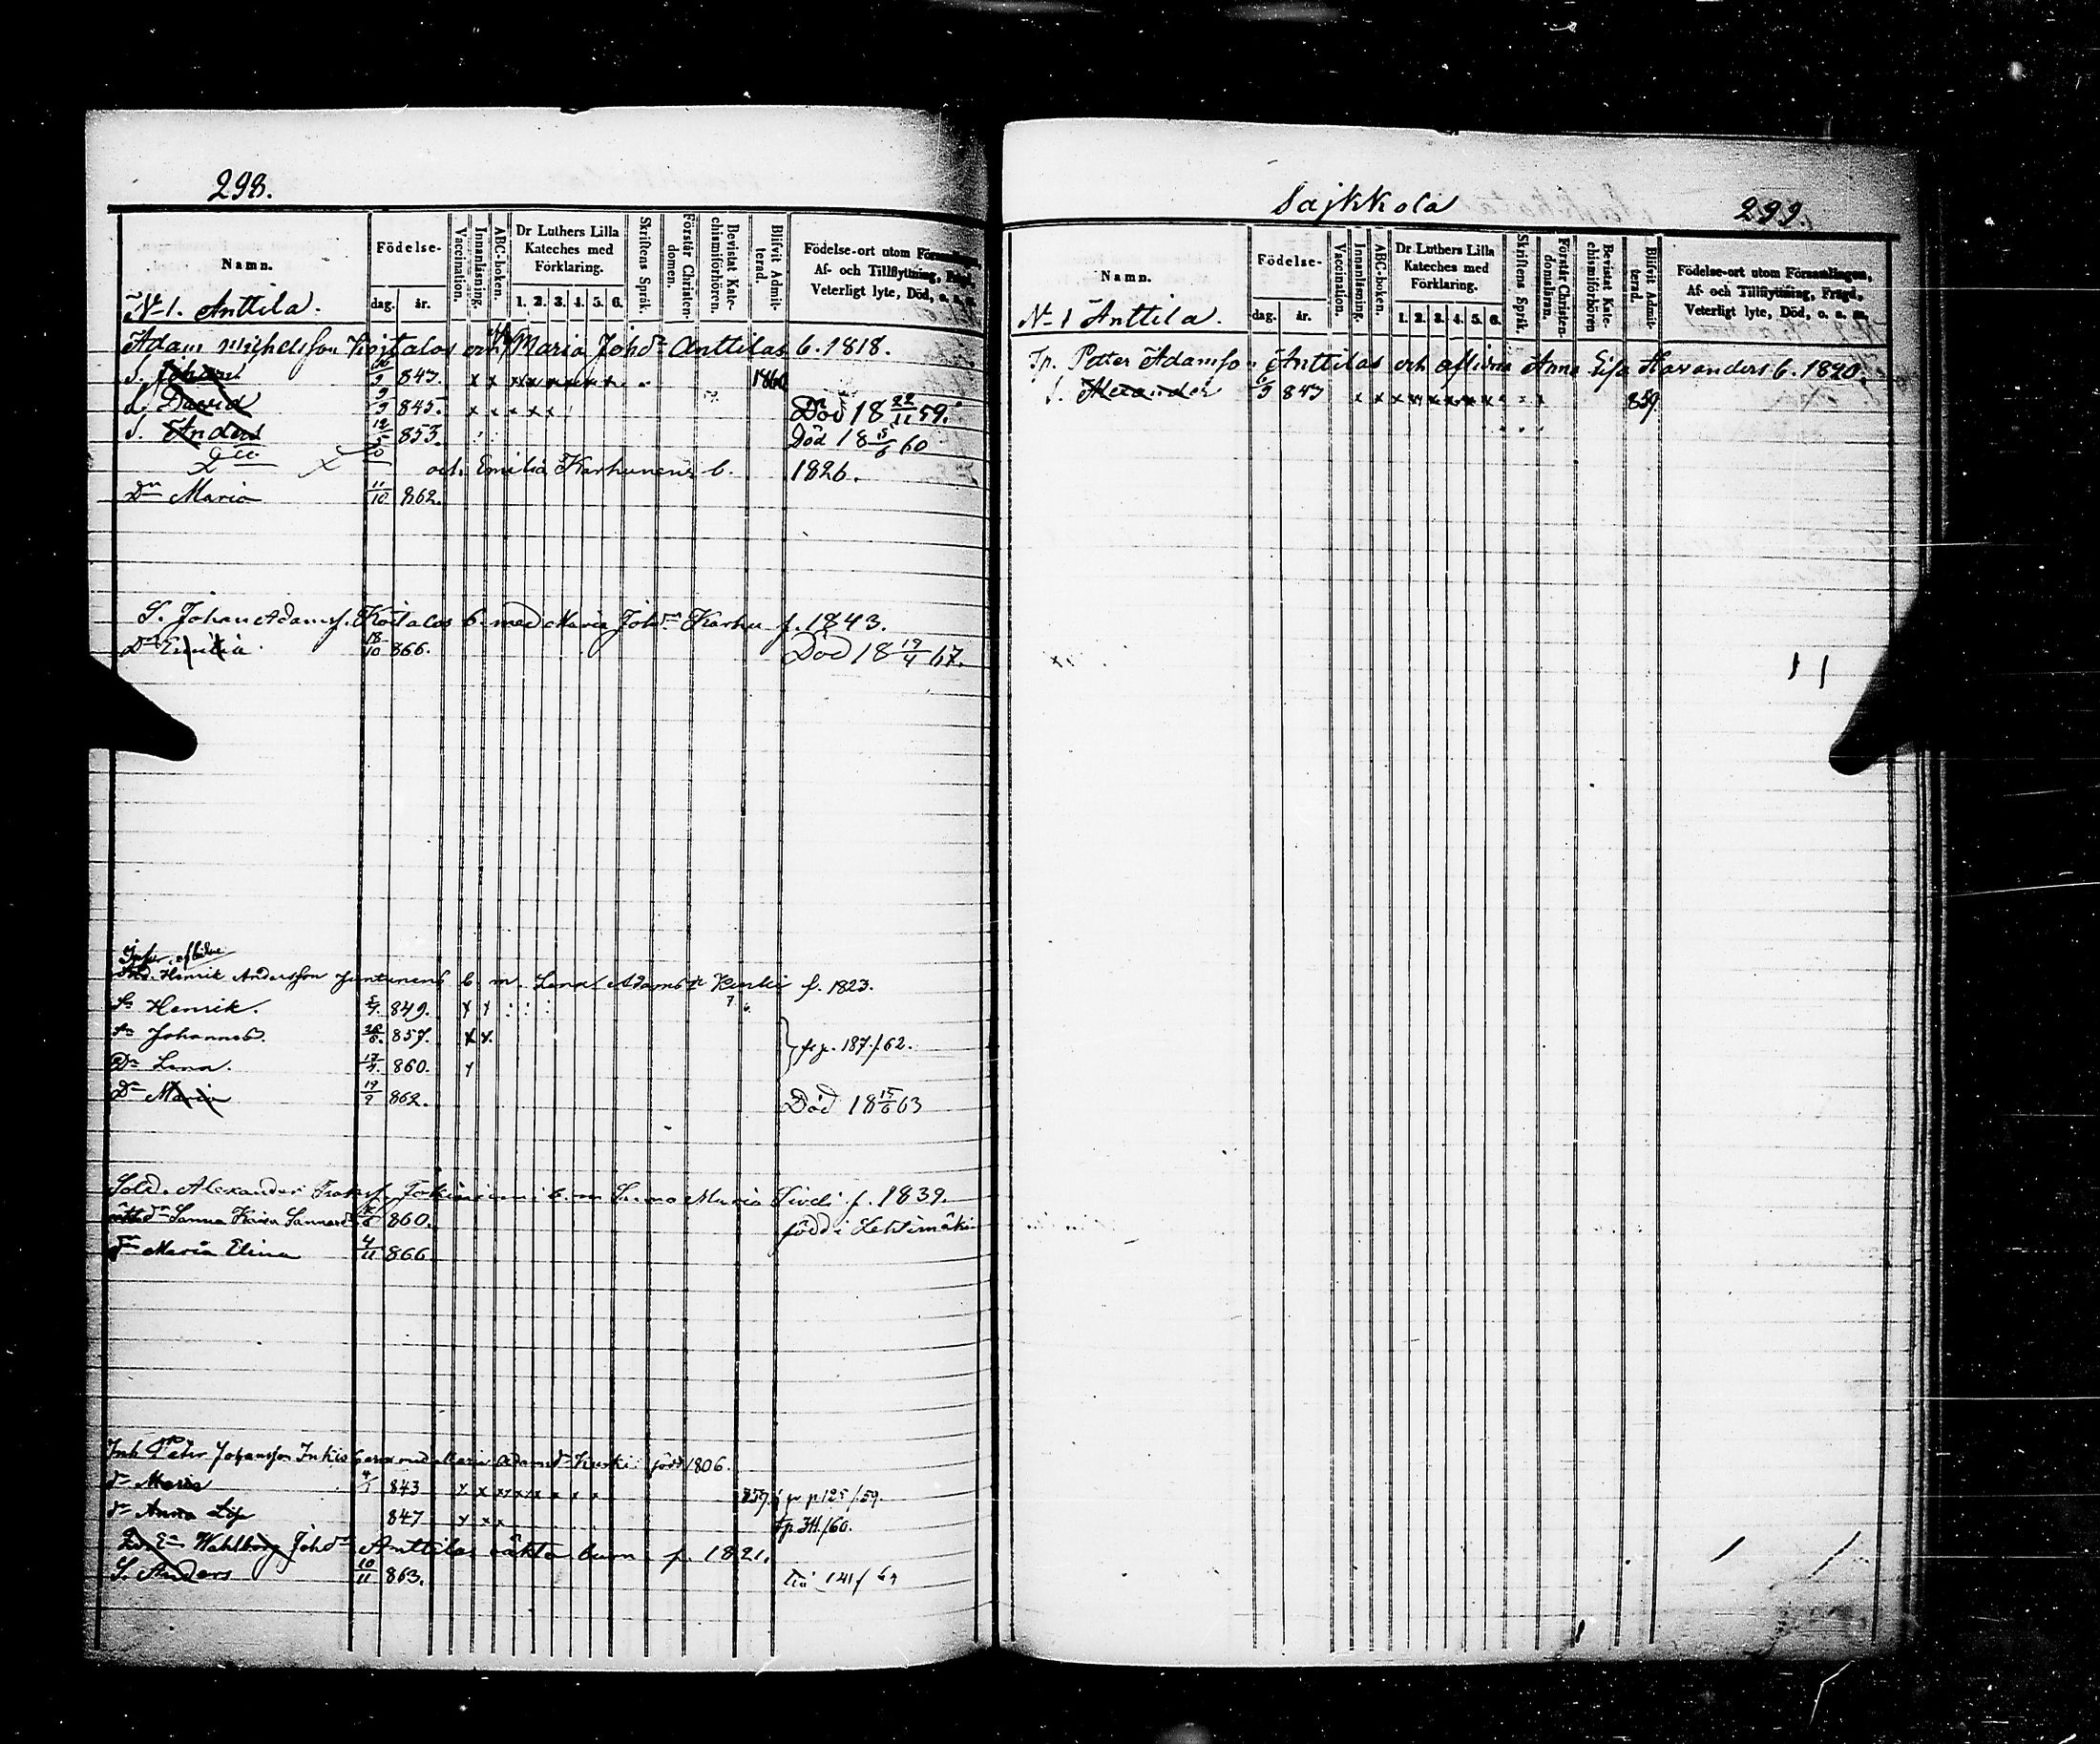 298.
Namn.
Födelse-
dag. år.
Vaccination.
Innanläsning.
ABC-boken.
Dr Luthers Lilla Kateches med Förklaring.
1. 2. 3. 4. 5. 6.
Skriftens Språk.
Förstår Christen-domen.
Bevistat Kate-chismiförhören.
Blifvit Admit-terad.
Födelse-ort utom Församlingen, Af- och Tillflyttning, Frägd, Veterligt lyte, Död, o. s. v.
N° 1. Anttila.
Adam Michelsson Koitalas och Maria Johd:r Anttilas b. 1818.
S. Johan 9 847. x x x x x x x x 1860
S. David 9/9 845. x x x x x Död 18 22/11 59.
S. Anders 12/5 853. Död 18 15/6 60
2:a och Emilia Karhunens b. 1826.
Dr Maria 11/10 862.
S. Johan Adamsf. Koitalas b. med Maria Johdr Karhu f. 1843.
Dr Emilia 18/10 866. Död 18 19/4 67.
aflidne
Sold. Henrik Andersson Juntunens b. m. Lena Adamsdr Kurki f. 1823.
Sn Henrik. 849. x x
Sn Johannes. 857. x x
fr p. 187/62.
Dr Lena. 860. x
Dr Maria 19/9 862. Död 18 15/6 63
Sold. Alexander b. m. Maria f. 1839.
860. född i Lehtimäki
dr Maria Elina 4/11 866.
Inh Peter Johansson med Maria Adamsdr Kurki född 1806.
dr Maria 4/1 843 x x x x x x x x 859. fr p 125/59.
dr Anna Lis 847 x x x fp 311/60.
Wahlborg Johdr Anttilas oäkta barn f. 1821.
S. Anders 10/11 863. till 141/69
Sajkkola
299.
Namn.
Födelse-
dag. år.
Vaccination.
Innanläsning.
ABC-boken.
Dr Luthers Lilla Kateches med Förklaring.
1. 2. 3. 4. 5. 6.
Skriftens Språk.
Förstår Christen-domsläran.
Bevistat Kate-chismiförhören
Blifvit Admit-terad.
Födelse-ort utom Församlingen, Af- och Tillflyttning, Frägd, Veterligt lyte, Död, o. s. v.
N° 1 Anttila.
Tp. Petter Adamsson Anttilas och aflidna Anna Lisa Havanders b. 1820.
S. Alexander 6/9 843 x x x x x x x x x x 859